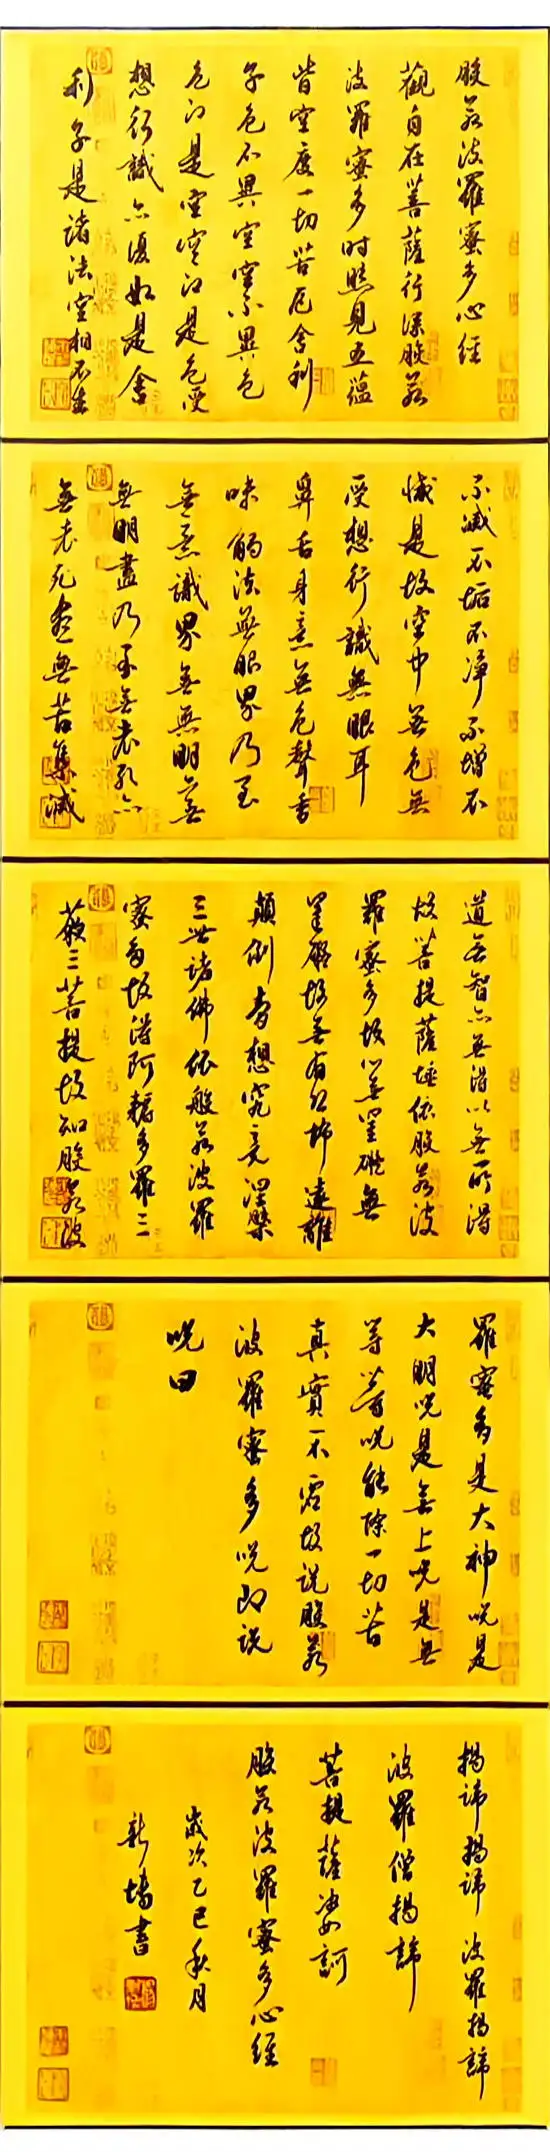 般若波羅蜜多心経
觀自在菩薩行深般若
波羅蜜多時照見五蘊
皆空度一切苦厄舍利
子色不異空空不異色
色即是空空即是色受
想行識亦復如是舍
利子是諸法空相不生
不滅不垢不净不增不
減是故空中無色無
受想行識無眼耳
鼻舌身意無色聲香
味觸法無眼界乃至
無意識界無無明無
無明盡乃至無老死亦
無老死盡無苦集滅
道無智亦無得以無所得
故菩提薩埵依般若波
羅蜜多故心無罣礙無
罣礙故無有恐怖遠離
顛倒夢想究竟涅槃
三世諸佛依般若波羅
蜜多故得阿耨多羅三
藐三菩提故知般若波
羅蜜多是大神咒是
大明咒是無上咒是無
等等咒能除一切苦
真實不虛故說般若
波羅蜜多咒即說
咒曰
揭諦揭諦 波羅揭諦
波羅僧揭諦
菩提薩婆訶
般若波羅蜜多心経
歲次乙巳秋月
新墻書